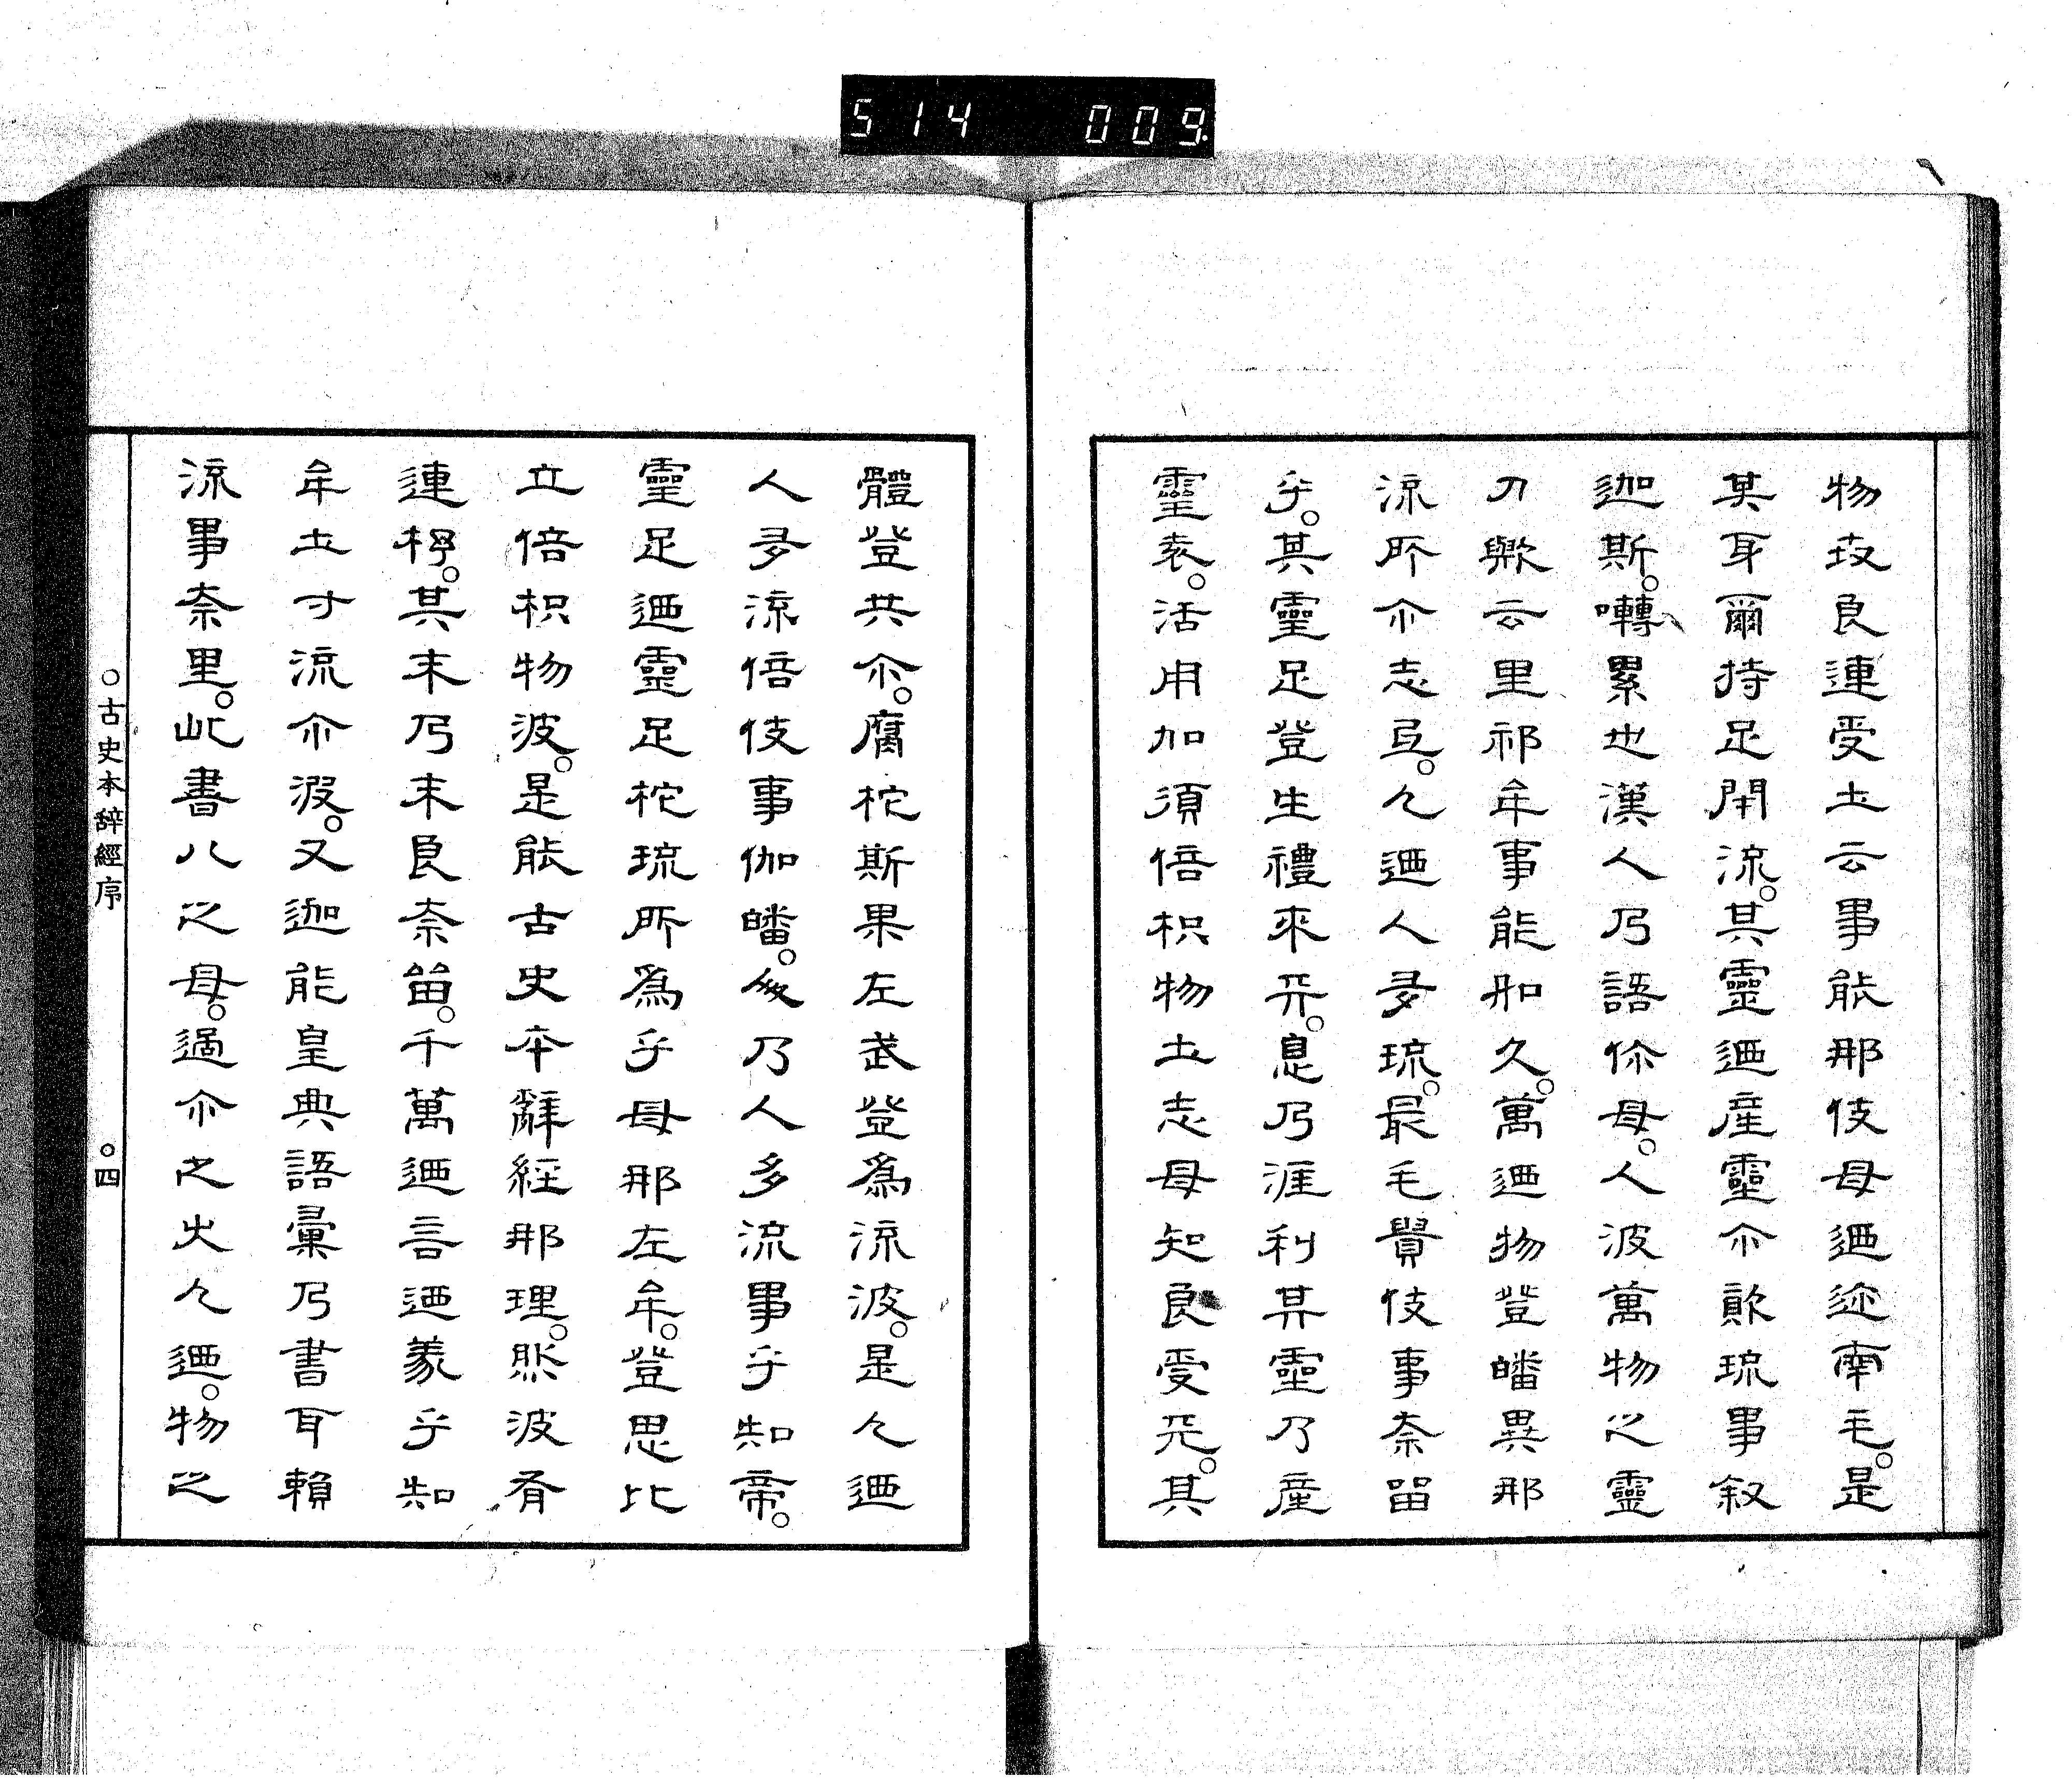 514 009
物攷良連受土云事能那伎母迺迹南毛。是
其耳爾持足開流。其靈迺産靈尒歟琉事叙
迦斯。囀累也漢人乃語你母。人波萬物之靈
刀歟云里祁牟事能那久。萬迺物登皤異那
流所尒志弖。久迺人多琉。最毛貴伎事奈留
乎。其靈足登生禮來弖。息乃涯利其靈乃産
靈袁。活用加須倍枳物土志母知良受弖。其
體登共尒。腐柁斯果左武登爲流波。是久迺
人多流倍伎事伽皤。多乃人多流事乎知帝。
靈足迺靈足柁琉所爲乎母那左牟。登思比
立倍枳物波。是能古史本辭經那理。然波有
連杼。其末乃末良奈留。千萬迺言迺義乎知
牟土寸流尒波。又迦能皇典語彙乃書耳賴
流事奈里。此書八之母。過尒之火久迺。物之
○古史本辭經序 ○四